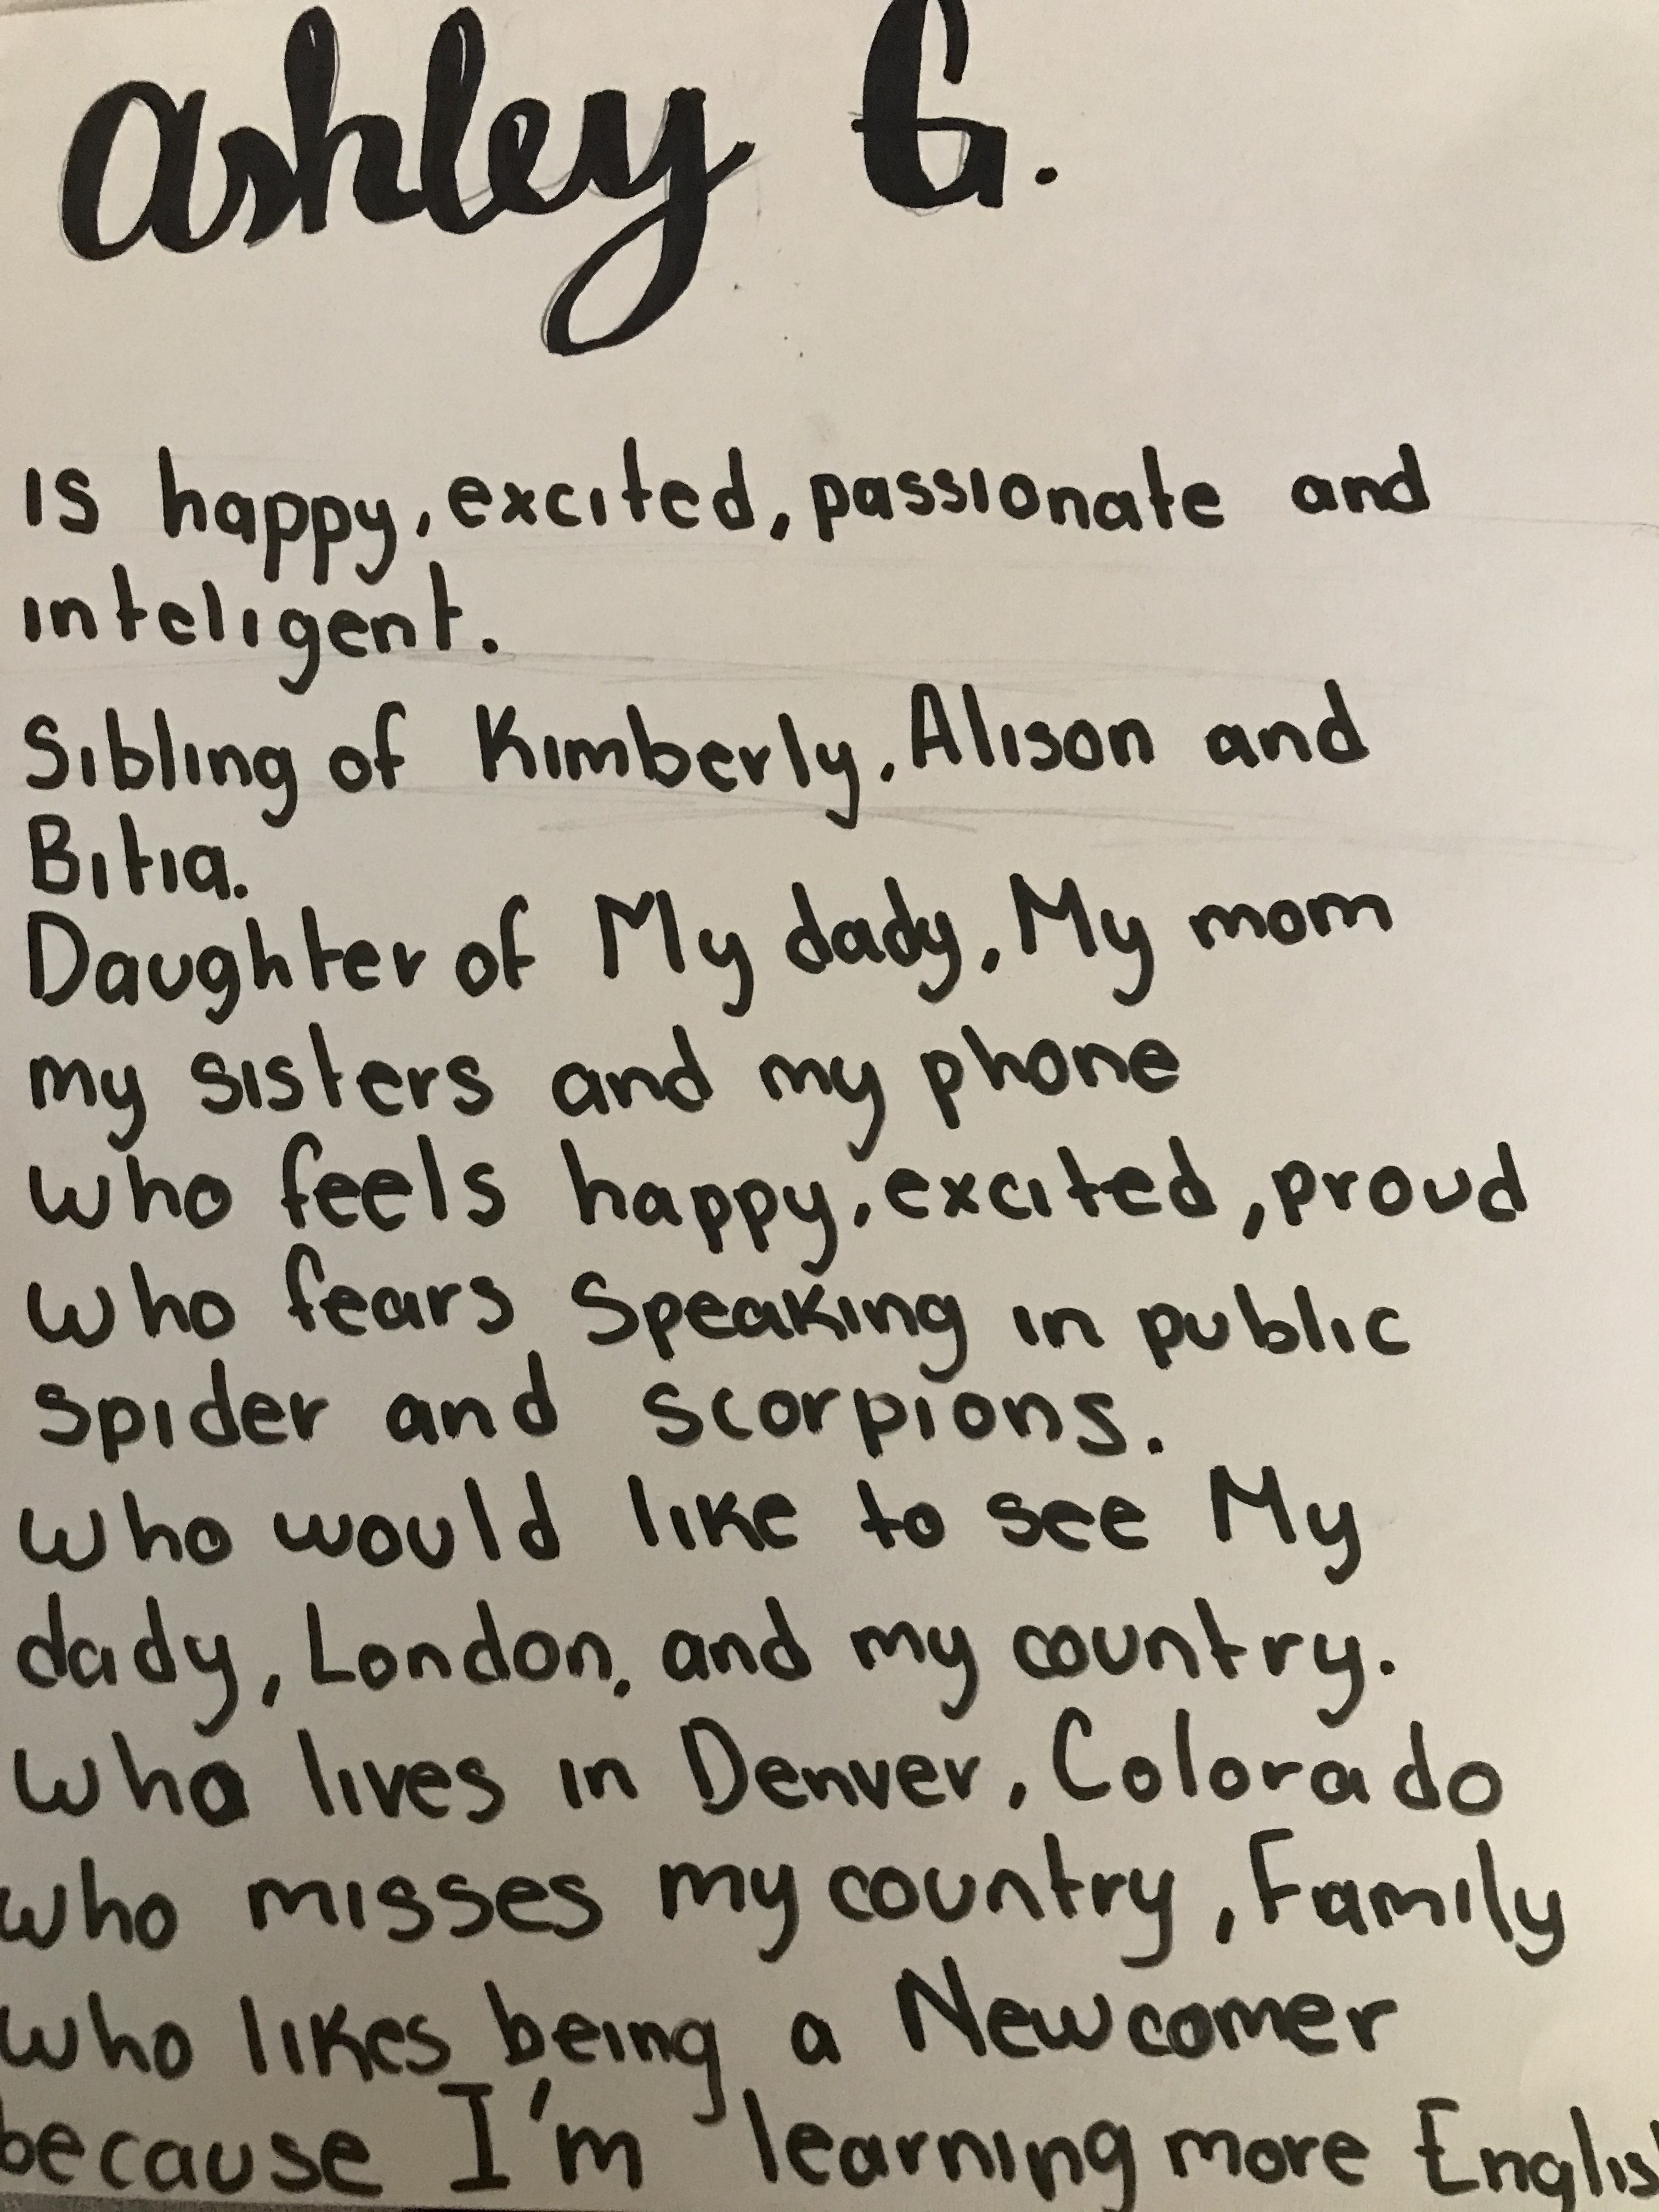 ashley G.
Is happy, excited, passionate and
inteligent.
Sibling of Kimberly, Alison and
Bitia.
Daughter of My dady, My mom
my sisters and my phone
who feels happy, excited, proud
who fears Speaking in public
spider and scorpions.
who would like to see My
dady, London, and my country.
who lives in Denver, Colorado
who misses my country, Family
who likes being a Newcomer
because I'm learning more Englis